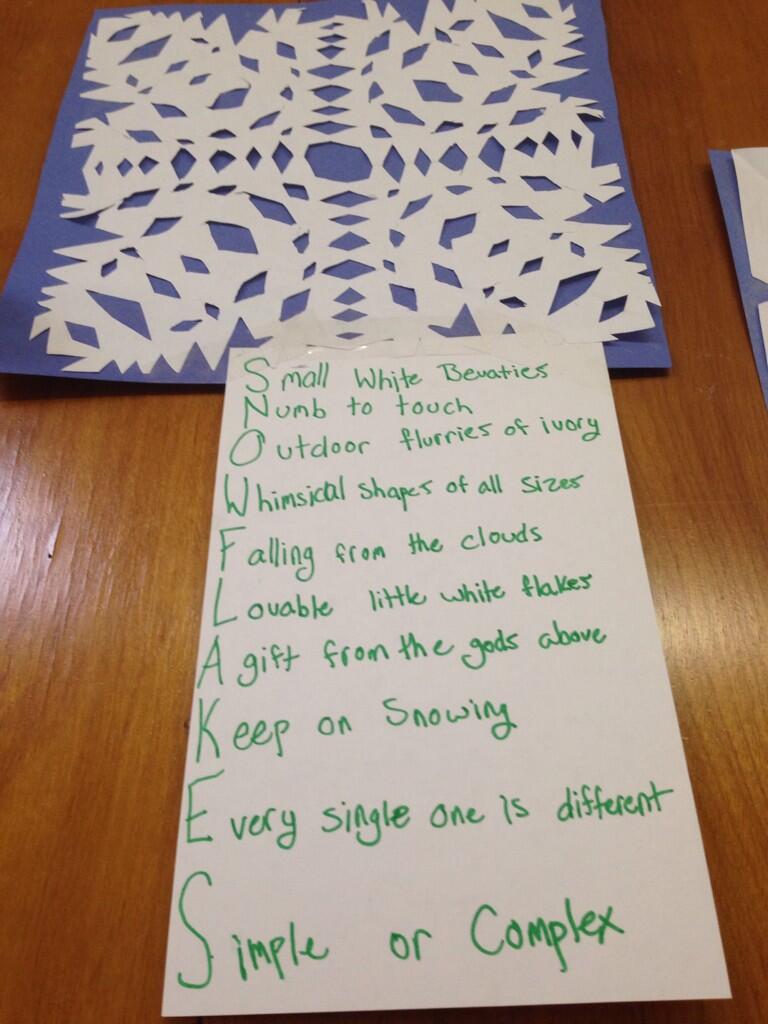 Small White Bevaties
Numb to touch
Outdoor flurries of ivory
Whimsical shapes of all sizes
Falling from the clouds
Lovable little white flakes
A gift from the gods above
Keep on Snowing
Every single one is different
Simple or Complex